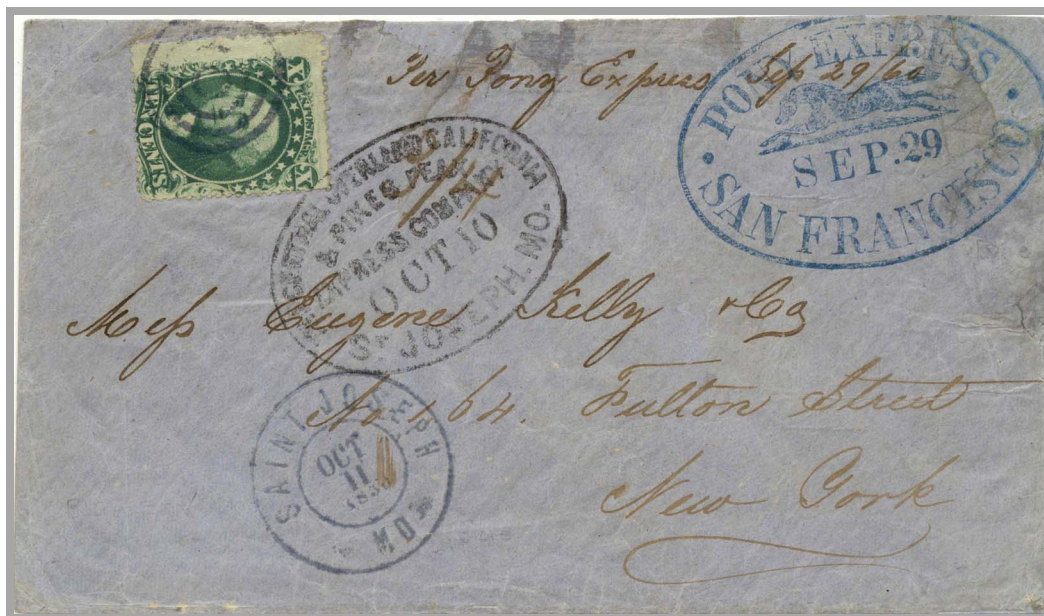 Per Pony Express Sep 29/60
PONY EXPRESS
SEP. 29
SAN FRANCISCO
X U.S. POSTAGE X
TEN CENTS
CENTRAL OVERLAND CALIFORNIA
& PIKES PEAK
EXPRESS COMPANY
OCT 10
ST JOSEPH. MO.
Mess Eugene Kelly & Co
No 64. Fulton Street
New York
SAINT JOSEPH
OCT
11
MO